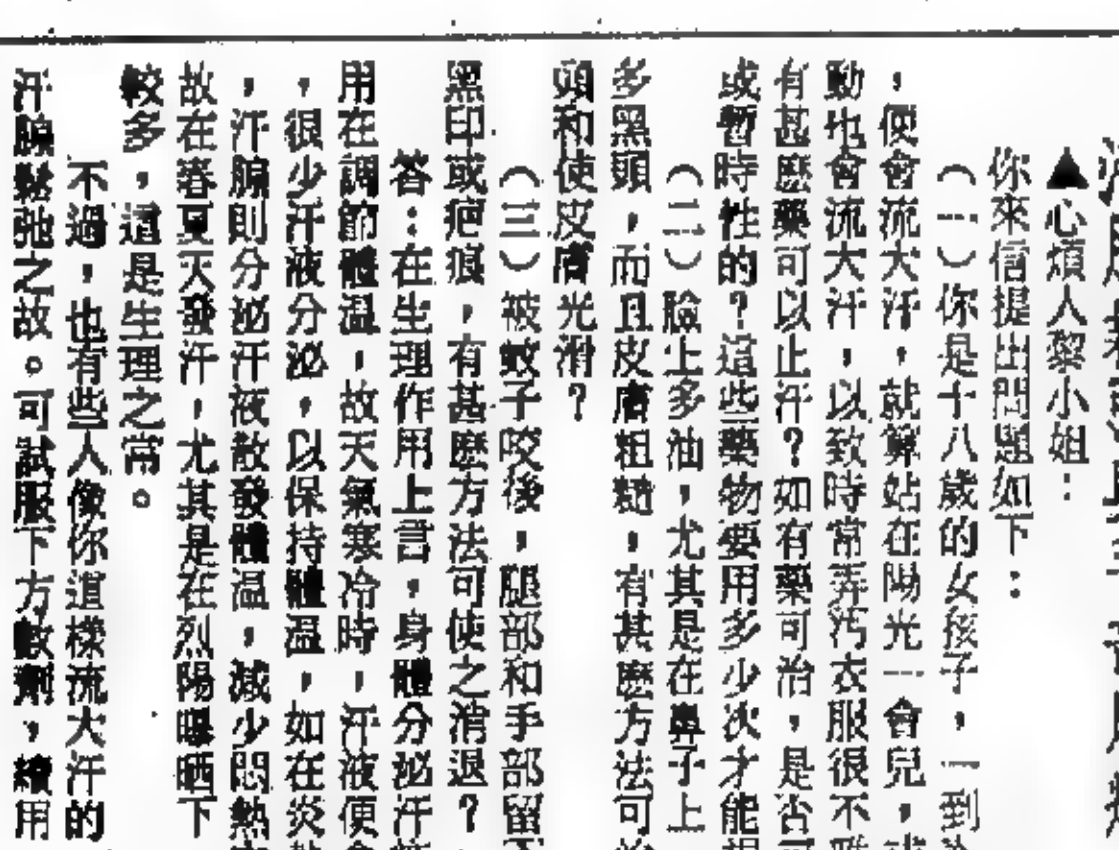 ▲心煩人黎小姐：
你來信提出問題如下：
（一）你是十八歲的女孩子，一到
，便會流大汗，就算站在陽光一會兒，
動也會流大汗，以致時常弄汚衣服很不
有甚麼藥可以止汗？如有藥可治，是否
或暫時性的？這些藥物要用多少次才能
（二）臉上多油，尤其是在鼻子上
多黑頭，而且皮膚粗糙，有甚麼方法可
頭和使皮膚光滑？
（三）被蚊子咬後，腿部和手部留
黑印或疤痕，有甚麼方法可使之消退？
答：在生理作用上言，身體分泌汗
用在調節體温，故天氣寒冷時，汗液便
，很少汗液分泌，以保持體温，如在炎
，汗腺則分泌汗液散發體温，減少悶熱
故在春夏天發汗，尤其是在烈陽曝晒下
較多，這是生理之常。
不過，也有些人像你這樣流大汗的
汗腺鬆弛之故。可試服下方數劑，續用